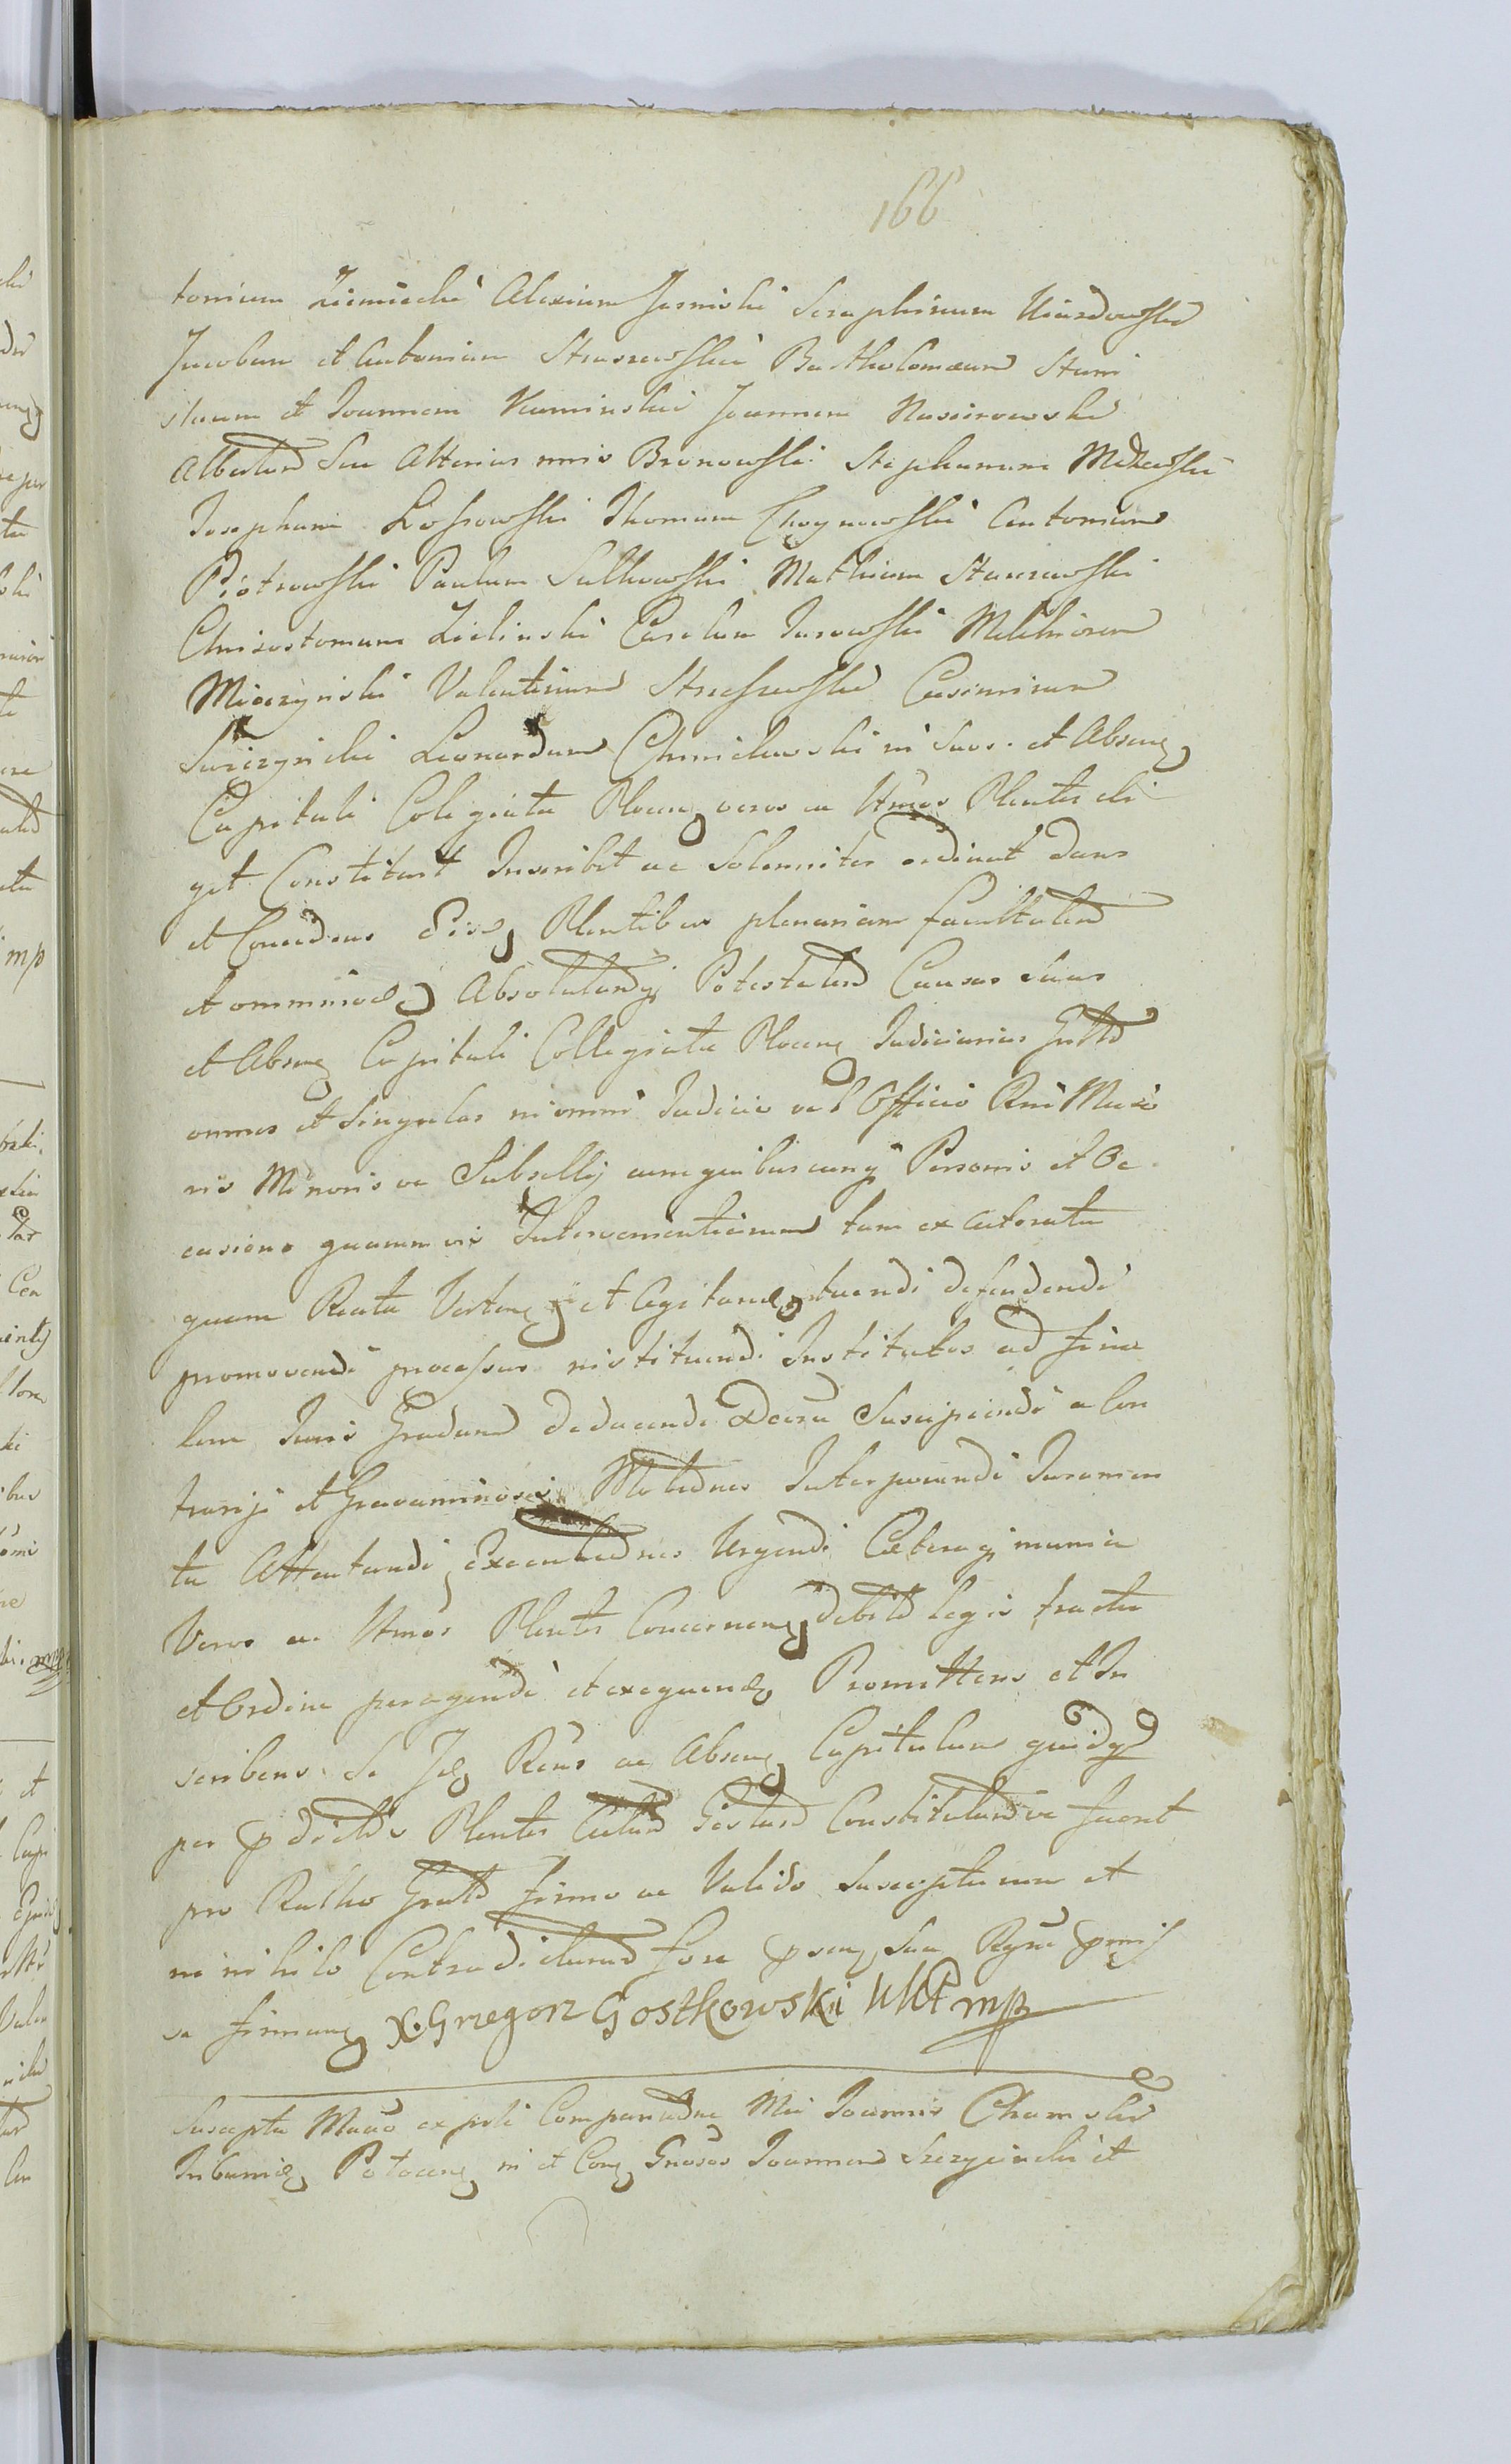 166
tonium Ziemiecki Alexium Jasinski Seraphinum
Jacobum et Antonium Straszewski Bartholomaeum Stani
slaum et Joannem Kaminskie Joannem
Albertum Seu Alterius nnis Bronowski Stephanum
Josephum Lossowski Thomam Choynowski Antonium
Piotrowski Paulum Sulkowski Mathiam Staszewski
Chrisostomum Zielinski Carolum Jurowski Melchiorem
Mioczynski Valentinum Straszewski Casimirum
Leonardum Chmielewski in Suos et Absen
Capituli Colegiatae Plocen veros ac Lttmos Plentes eli
git Constituit Inscribit ac Solenniter ordinat dans
et Concedens Eisd Plentibus plenariam facultatem
et omnimod Absolutamq Potestatem Causas suas
et Absen Capituli Collegiatae Plocen Judiciarias
omnes et Singulas in omni Judicio vel Officio Rni Maio
ris Minoris ve Subsellij cum quibuscunq Personis et Oc
casione quamvis Intervenientium tam ex Actoratu
quam Reatu Verten et Agitand tuendi defendendi
promovendi processus instituendi Institutos ad fina
lem Juris Gradum deducendi Decreta Suscipiendi a Con
trarijs et Gravaminosis Motiones Interponendi Juramen
ta Attentandi Executiones Urgendi Caeteraq munia
Veros ac Lttmos Plentes Concernen debito legis tractu
et Ordine peragendi et exequend Promittens et In
scribens Se Id Rndus ac Absen Capitulum quidqd
per pdictos Plentes Actum Gestum Constitutum ve fuerit
pro Ratho Grato firmo ac Valido Suscepturum et
in nihilo Contradicturum fore psen Sua
va firman X. Grzegorz Gostkowski mp
Suscepta Manu ex psti Comparitione Mci Joannis Chamski
Tribunid Plocen in et Coram Gnosos Joannem et